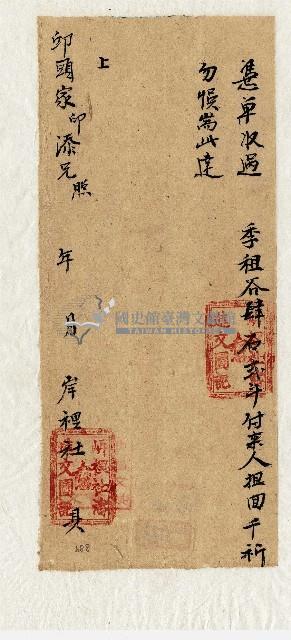 憑單収過　季租谷肆石貳斗付来人担回千祈
勿悞耑此達
上
邱頭家印添兄照
年　月　岸裡社　具
國史館臺灣文獻館
TAIWAN HISTORICA